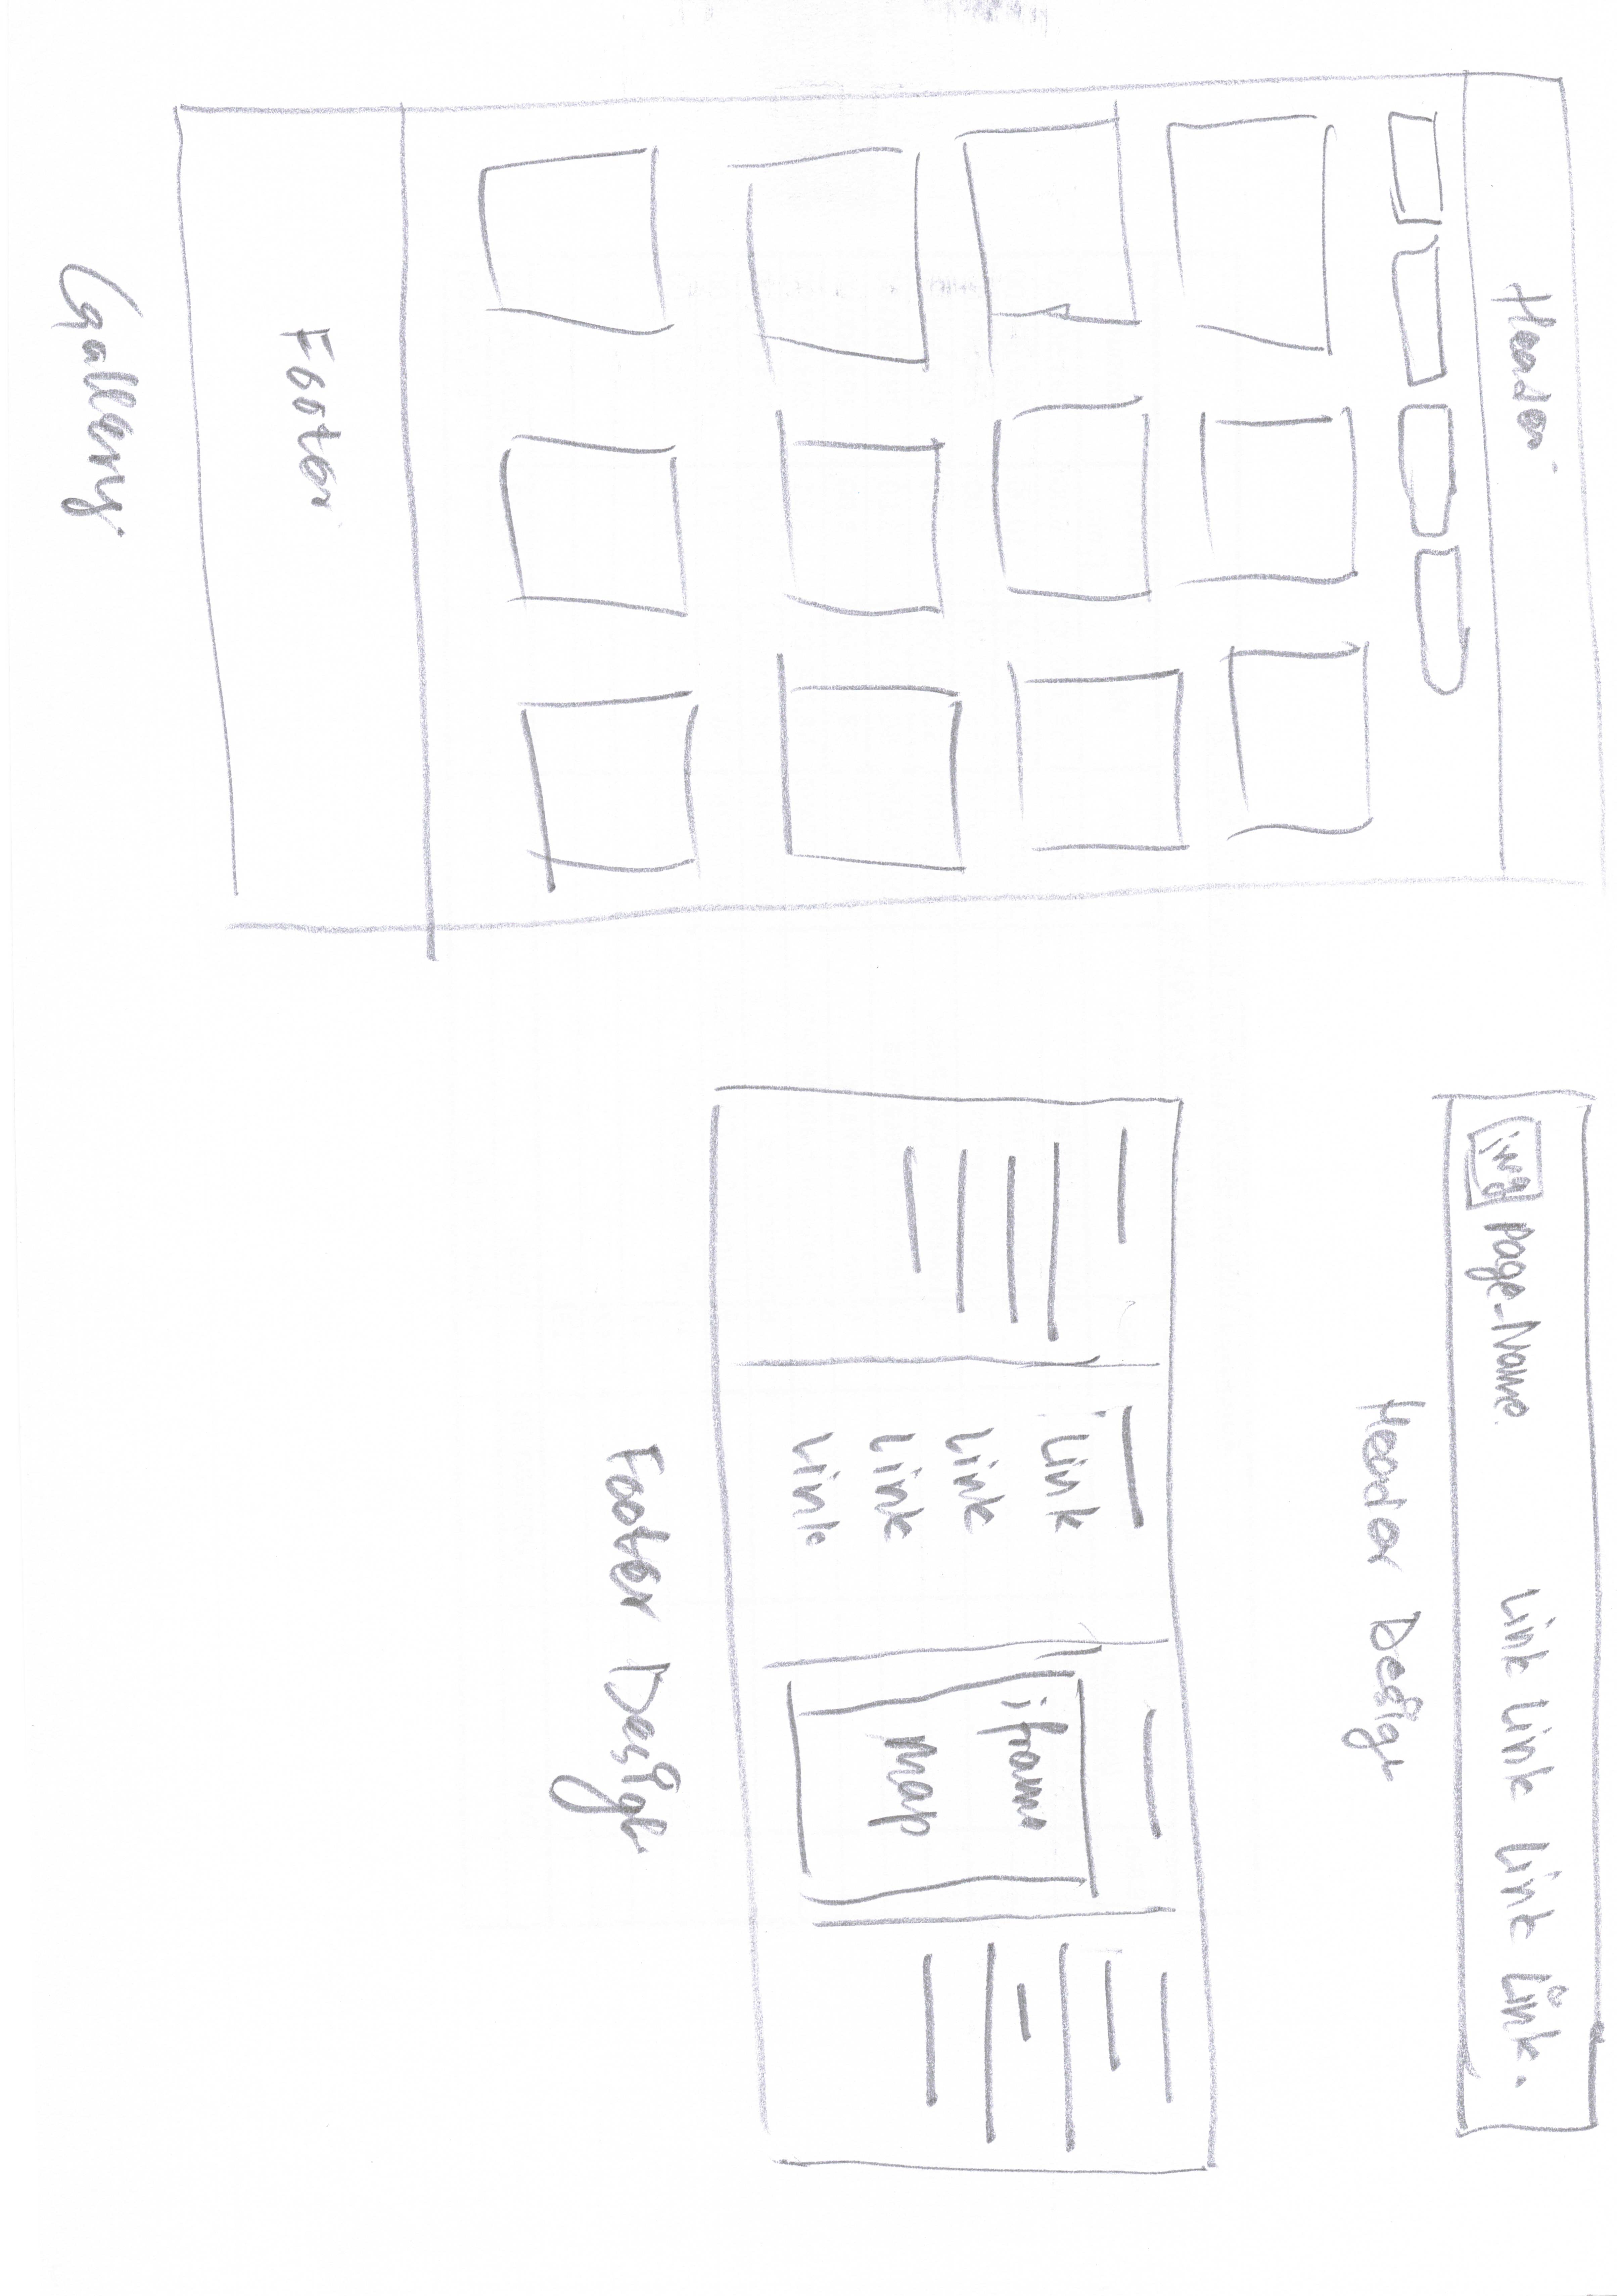 Header
Footer
Gallery.
img Page-Name. Link Link Link Link.
Header Design
Link
Link
Link
Link
iframe
map
Footer Design